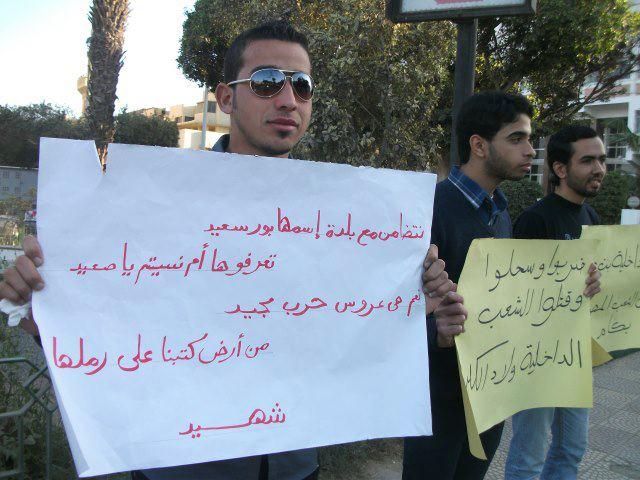 نتضامن مع بلدة إسمها بورسعيد
تعرفوها أم نسيتم يا صعيد
نعم هى عروس حرب مجيد
من أرض كتبنا على رملها
شهيد
ضربوا وسحلوا
وقتلوا الشعب
الداخلية ولاد الكلب